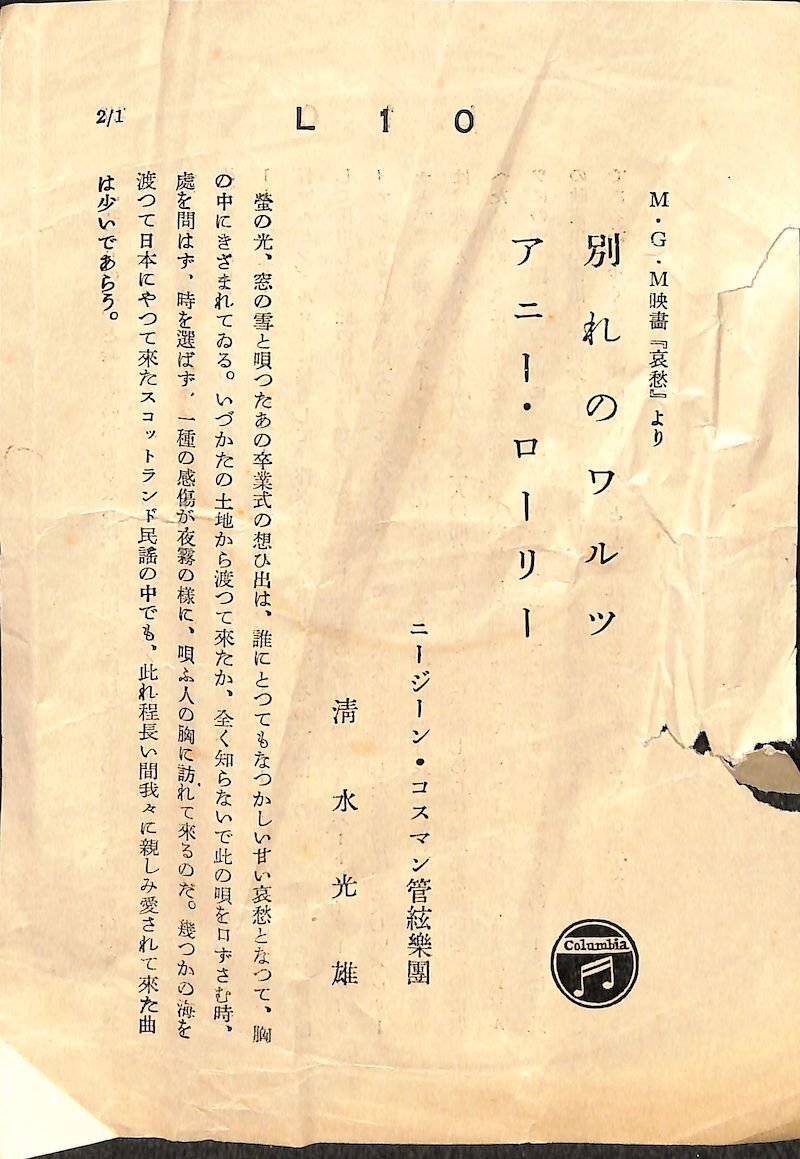 L10
2/1
M・G・M映畵『哀愁』より
別れのワルツ
アニー・ローリー
ユージーン・コスマン管絃樂團
Columbia
清水光雄
螢の光、窓の雪と唄つたあの卒業式の想ひ出は、誰にとつてもなつかしい甘い哀愁となつて、胸
の中にきざまれてゐる。いづかたの土地から渡つて來たか、全く知らないで此の唄を口ずさむ時、
處を問はず、時を選ばず、一種の感傷が夜霧の樣に、唄ふ人の胸に訪れて來るのだ。幾つかの海を
渡つて日本にやつて來たスコットランド民謠の中でも、此れ程長い間我々に親しみ愛されて來た曲
は少いであらう。